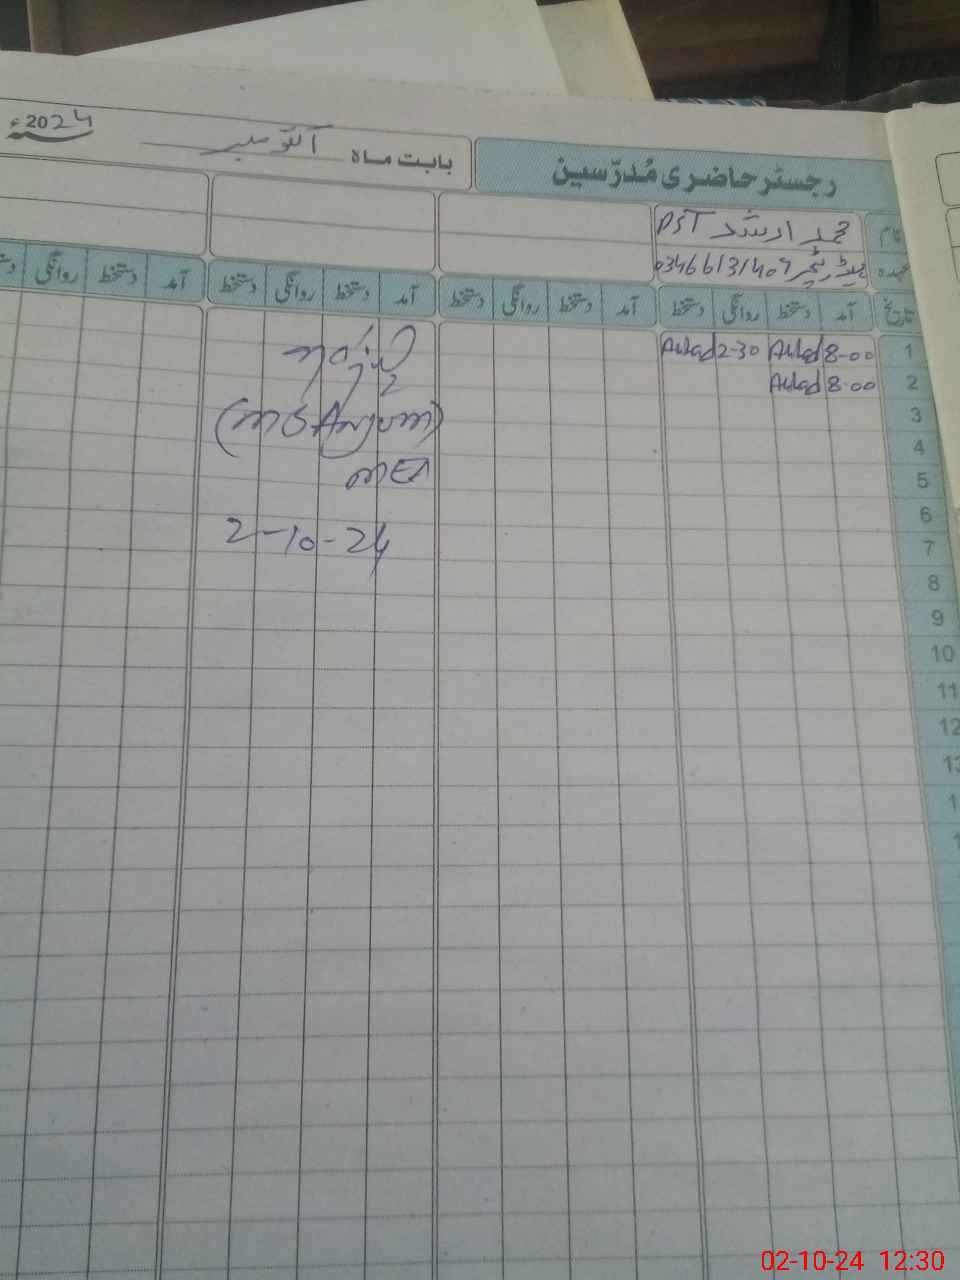 رجسٹر حاضری مُدرّسین
بابت ماہ اکتوبر 2024ء
نام محمد ارشد PST
عہدہ ہیڈ ٹیچر 03466131409
تاریخ آمد دستخط روانگی دستخط آمد دستخط روانگی دستخط آمد دستخط روانگی دستخط آمد دستخط روانگی
1 8-00 2-30
2 8-00
3
4
5
6
7
8
9
10
11
12
(MS Anjum)
MEA
2-10-24
02-10-24 12:30